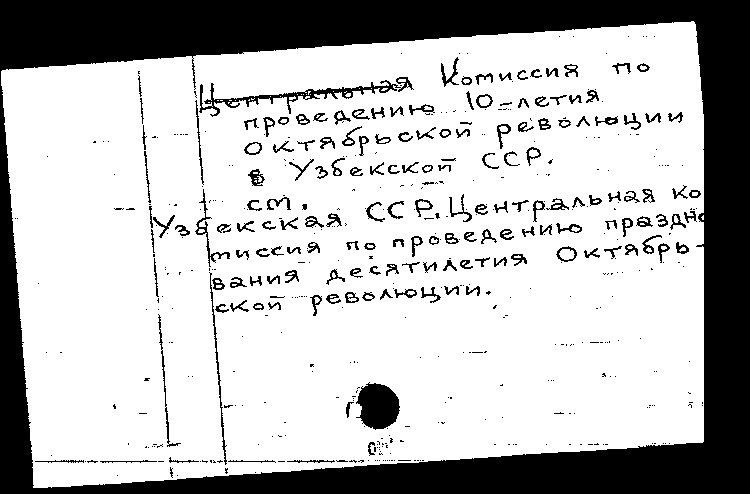 Центральная Комиссия по
проведению 10-летия
Октябрьской революции
в Узбекской ССР.
см.
Узбекская ССР. Центральная ко
миссия по проведению праздно
вания десятилетия Октябрь-
ской революции.